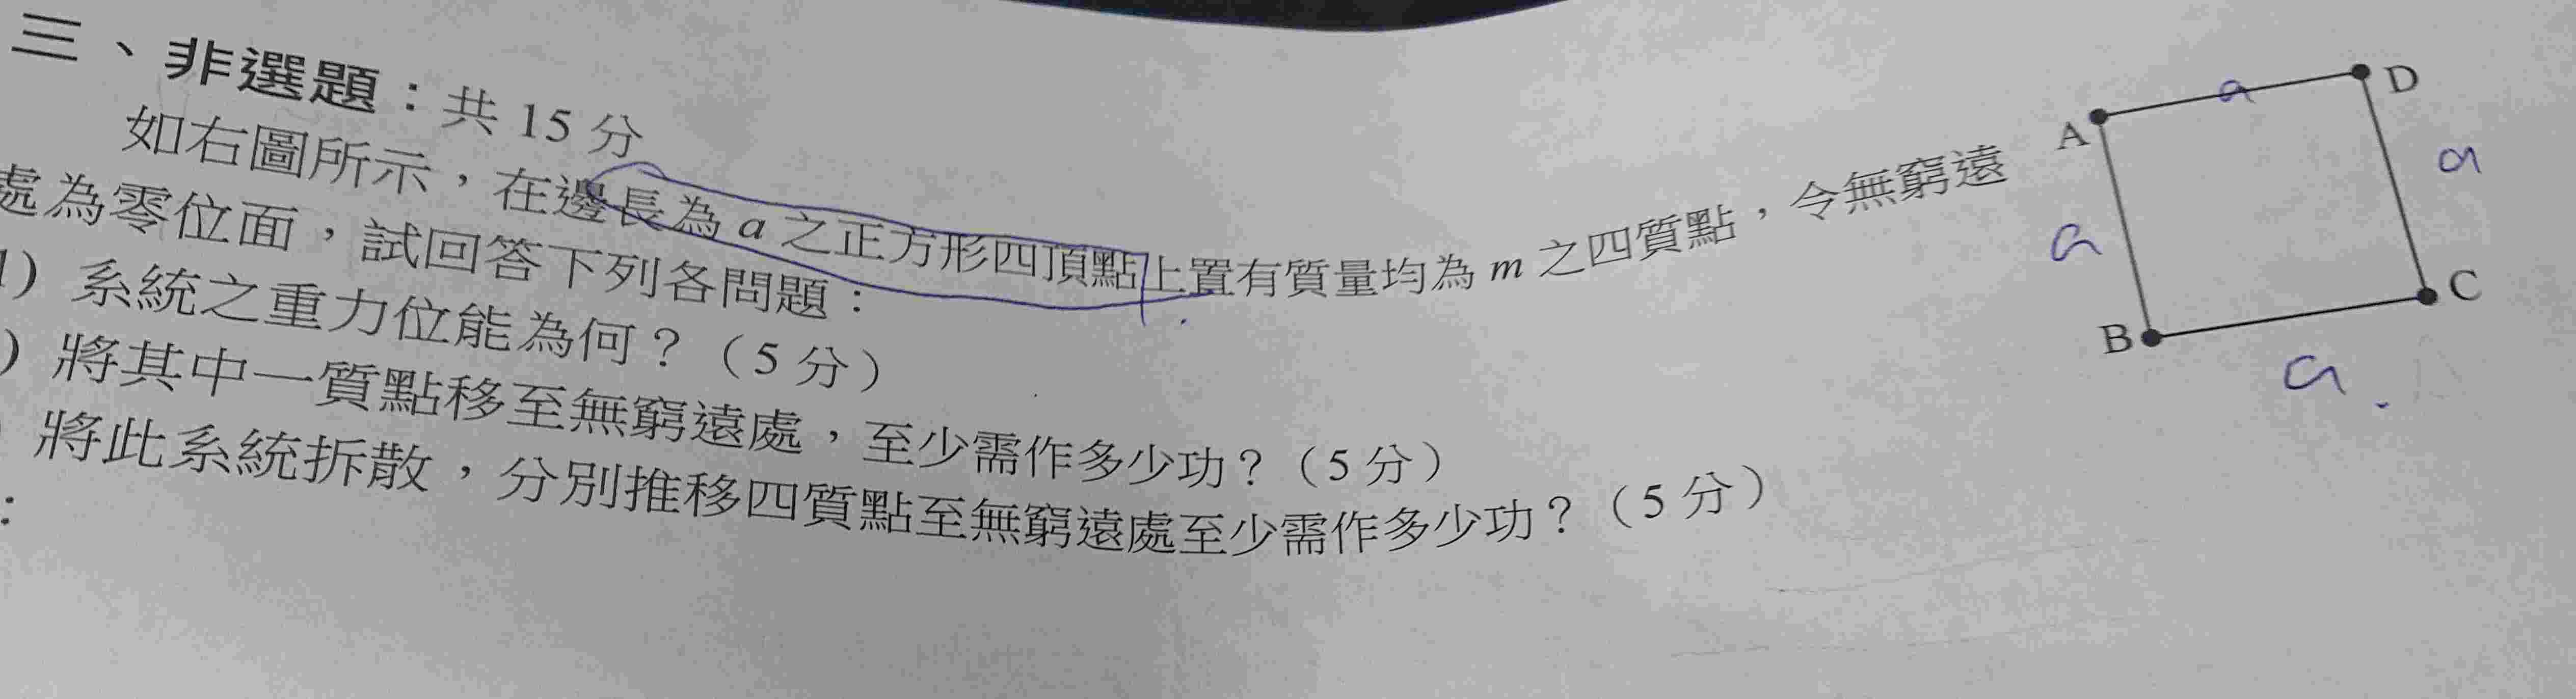 三、非選題：共 15 分
如右圖所示，在邊長為 a 之正方形四頂點上置有質量均為 m 之四質點，令無窮遠
處為零位面，試回答下列各問題：
1) 系統之重力位能為何？（5 分）
) 將其中一質點移至無窮遠處，至少需作多少功？（5 分）
將此系統拆散，分別推移四質點至無窮遠處至少需作多少功？（5 分）
：
A
D
B
C
a
a
a
a